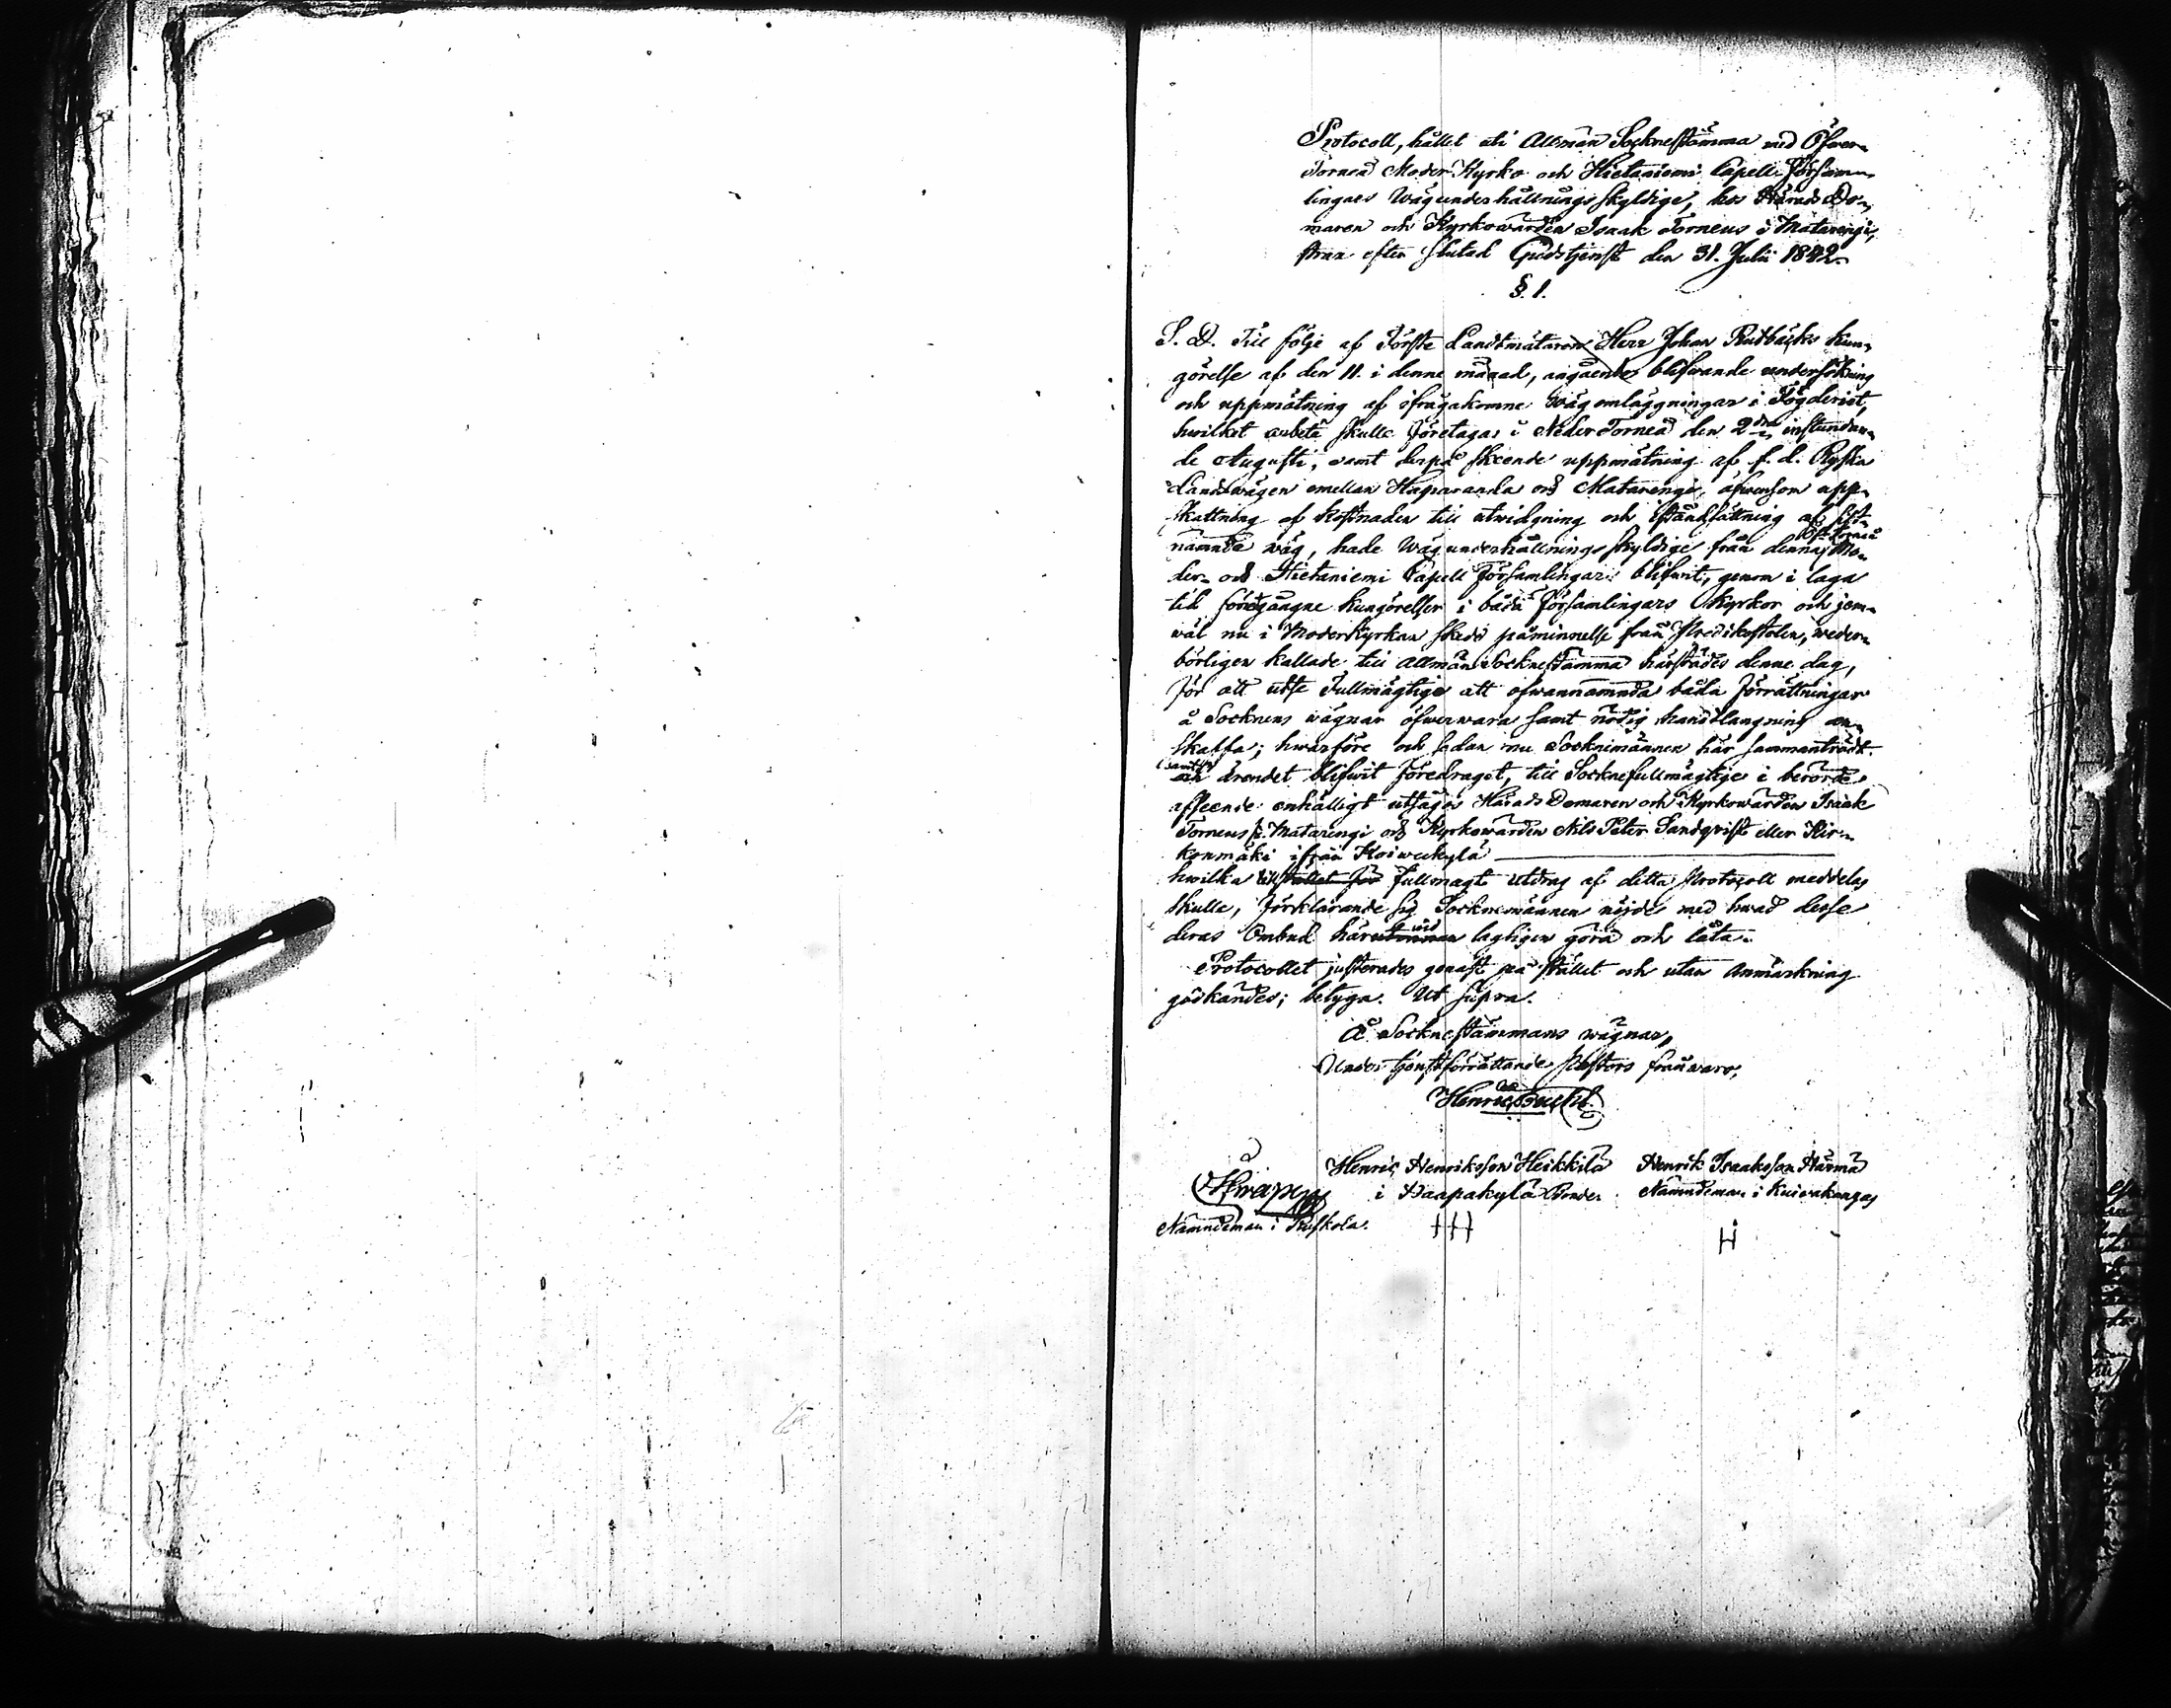 Protocoll, hållet uti Allmän Sockneståmma med Öfwer-
Torneå Moder-Kyrko och Hietaniemi Capell-Försam-
lingars Wägunderhållnings skyldige, hos Härads Do-
maren och Kyrkowärden Isaak Torneus i Matarengi,
strax efter slutad Gudstjenst den 31. Julii 1842.
§. 1.
S. D. Till följe af Förste Landtmätaren Herr Johan Rutbäcks kun-
görelse af den 11. i denne månad, angående blifwande undersökning
och uppmätning af ifrågakomne Wägomläggningar i Fögderiet,
hwilket arbete skulle företagas i Neder Torneå den 2dra instundan-
de Augusti, samt derpå skeende uppmätning af f. d. Ryska
Landswägen emellan Haparanda och Matarengi, äfwensom upp-
skattning af kostnaden till utwidgning och iståndsättning af sist-
nämnde wäg, hade Wägunderhållnings skyldige från denna Öf: Torneå Mo-
der- och Hietaniemi Capell Församlingar blifwit, genom i laga
tid föregångne kungörelser i båda Församlingars Kyrkor och jem-
wäl nu i Moderkyrkan skedd påminnelse från Predikstolen, weder-
börligen kallade till Allmän Sockneståmma härstädes denne dag,
för att utse Fullmägtige att ofwannämnda båda förrättningar
å Socknens wägnar öfwerwara samt nödig handtlangning an-
skaffa; hwarföre och sedan nu Socknemännen här sammanträdt
samt ärendet blifwit föredraget, till Socknefullmägtige i berörde
afseende enhälligt utsågos Härads Domaren och Kyrkowärden Isaak
Torneus fr. Matarengi och Kyrkowärden Nils Peter Sandqvist eller Kir-
konmäki ifrån Koiwukylä
hwilka till fullmagt utdrag af detta Protocoll meddelas
skulle, förklarande sig Socknemännen nöjde med hwad desse
deras Ombud härwid lagligen göra och låta.
Protocollet justerades genast på stället och utan Anmärkning
godkändes; betyga. Ut supra.
Å Sockneståmmans wägnar,
Under tjenstförrättande Pastors frånwaro,
Henric
Henric Henriksson Heikkilä Henrik Isaaksson Härmä
i Haapakylä Bonde. Nämndeman i Kuiwakangas
Nämndeman i Ruskola.
HH